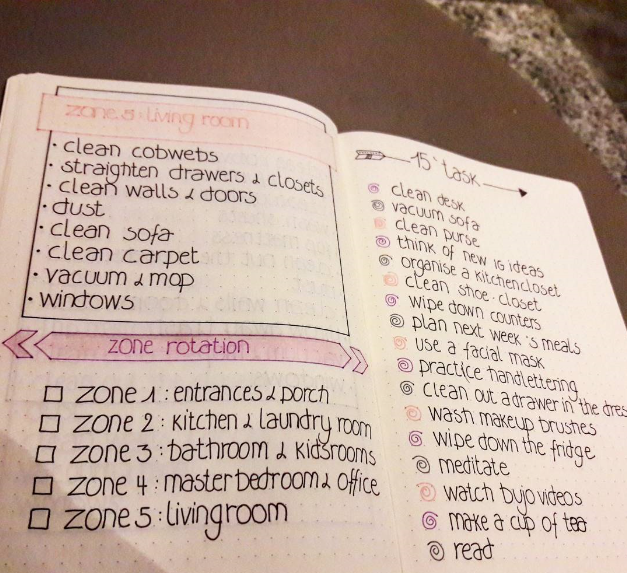 zone 5: living room
· clean cobwebs
· straighten drawers & closets
· clean walls & doors
· dust
· clean sofa
· clean carpet
· vacuum & mop
· windows
zone rotation
zone 1: entrances & porch
zone 2: kitchen & laundry room
zone 3: bathroom & kidsrooms
zone 4: master bedroom & office
zone 5: living room
15' task
clean desk
vacuum sofa
clean purse
think of new ig ideas
organise a kitchencloset
clean shoe-closet
wipe down counters
plan next week's meals
use a facial mask
practice handlettering
clean out a drawer in the
wash makeup brushes
wipe down the fridge
meditate
watch bujo videos
make a cup of tea
read